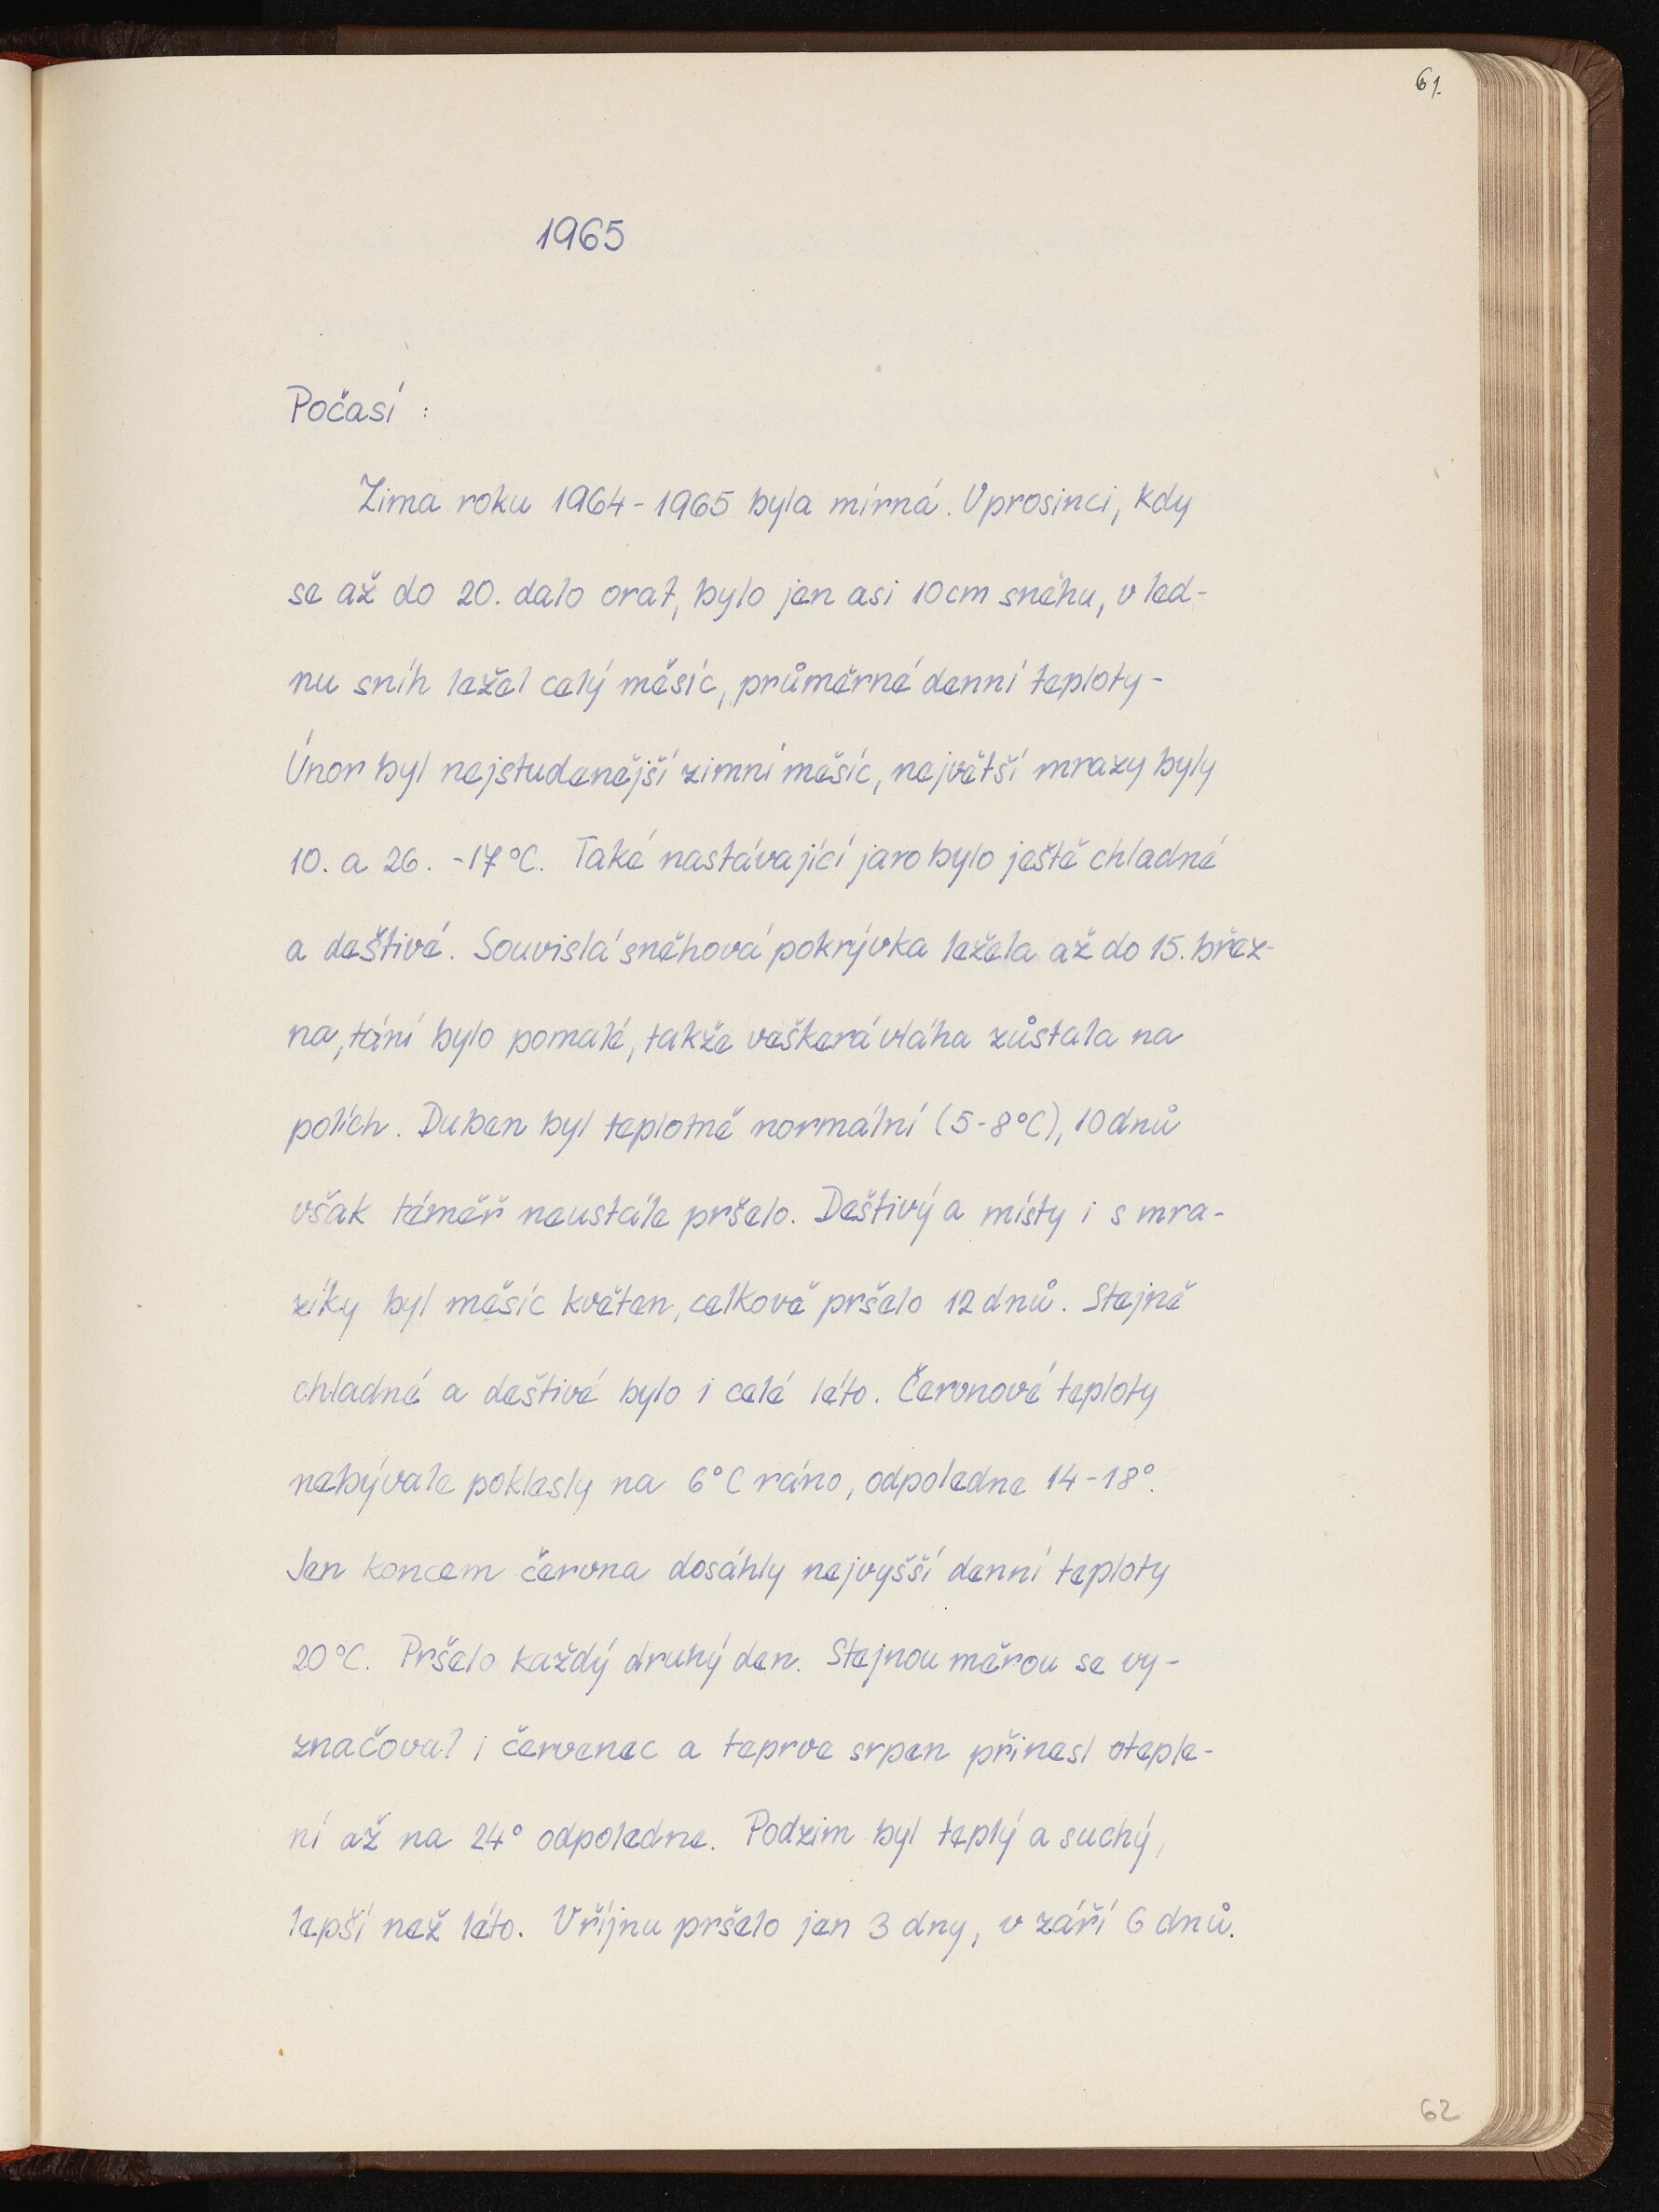 61.
1965
Počasí :
Zima roku 1964-1965 byla mírná. V prosinci, kdy
se až do 20. dalo orat, bylo jen asi 10 cm sněhu, v led-
nu sníh ležel celý měsíc, průměrné denní teploty-
Únor byl nejstudenější zimní měsíc, největší mrazy byly
10. a 26. -17°C. Také nastávající jaro bylo ještě chladné
a deštivé. Souvislá sněhová pokrývka ležela až do 15. břez-
na, tání bylo pomalé, takže veškerá vláha zůstala na
polích. Duben byl teplotně normální (5-8°C), 10 dnů
však téměř neustále pršelo. Deštivý a místy i s mra-
zíky byl měsíc květen, celkově pršelo 12 dnů. Stejně
chladné a deštivé bylo i celé léto. Červnové teploty
nebývale poklesly na 6°C ráno, odpoledne 14-18°.
Jen koncem června dosáhly nejvyšší denní teploty
20°C. Pršelo každý druhý den. Stejnou měrou se vy-
značoval i červenec a teprve srpen přinesl oteple-
ní až na 24° odpoledne. Podzim byl teplý a suchý,
lepší než léto. V říjnu pršelo jen 3 dny, v září 6 dnů.
62